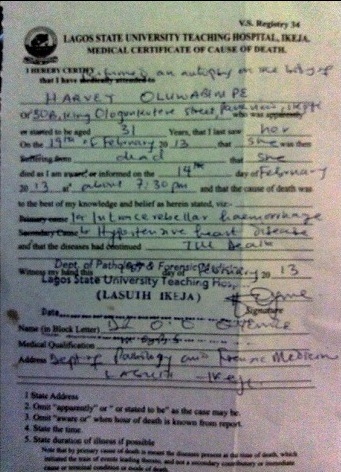 V.S. Registry 34
LAGOS STATE UNIVERSITY TEACHING HOSPITAL, IKEJA.
MEDICAL CERTIFICATE OF CAUSE OF DEATH.
I HEREBY CERTIFY an autopsy on the body of
that I have medically attended to
HARVEY
Of 30B, King Street, who was apparently
or started to be aged 31 Years, that I last saw her
On the 19th of February 20 13 that she was then
Suffering from dead that she
died as I am aware or informed on the 14th day of February
20 13 at about 7:30 pm and that the cause of death was
to the best of my knowledge and belief as herein stated, viz:-
Primary cause 1a Intracerebellar haemorrhage
Secondary Cause b Hypertensive heart disease
and that the diseases had continued Till Death
Witness my hand this day of February 20 13
Dept. of Pathology & Forensic Medicine
Lagos State University Teaching Hosp.
(LASUTH IKEJA)
Signature
Date
Name (in Block Letter) Dr O.C
Medical Qualification
Address Dept of Pathology and Forensic Medicine
LASUTH - Ikeja.
1 State Address
2. Omit "apparently" or " or stated to be" as the case may be.
3. Omit "aware or" when hour of death is known from report.
4. State the time.
5. State duration of illness if possible
Note that by primary cause of death is meant the diseases present at the time of death, which
initiated the train of events leading thereto, and not a secondary contributory or immediate
cause or terminal condition or mode of death.